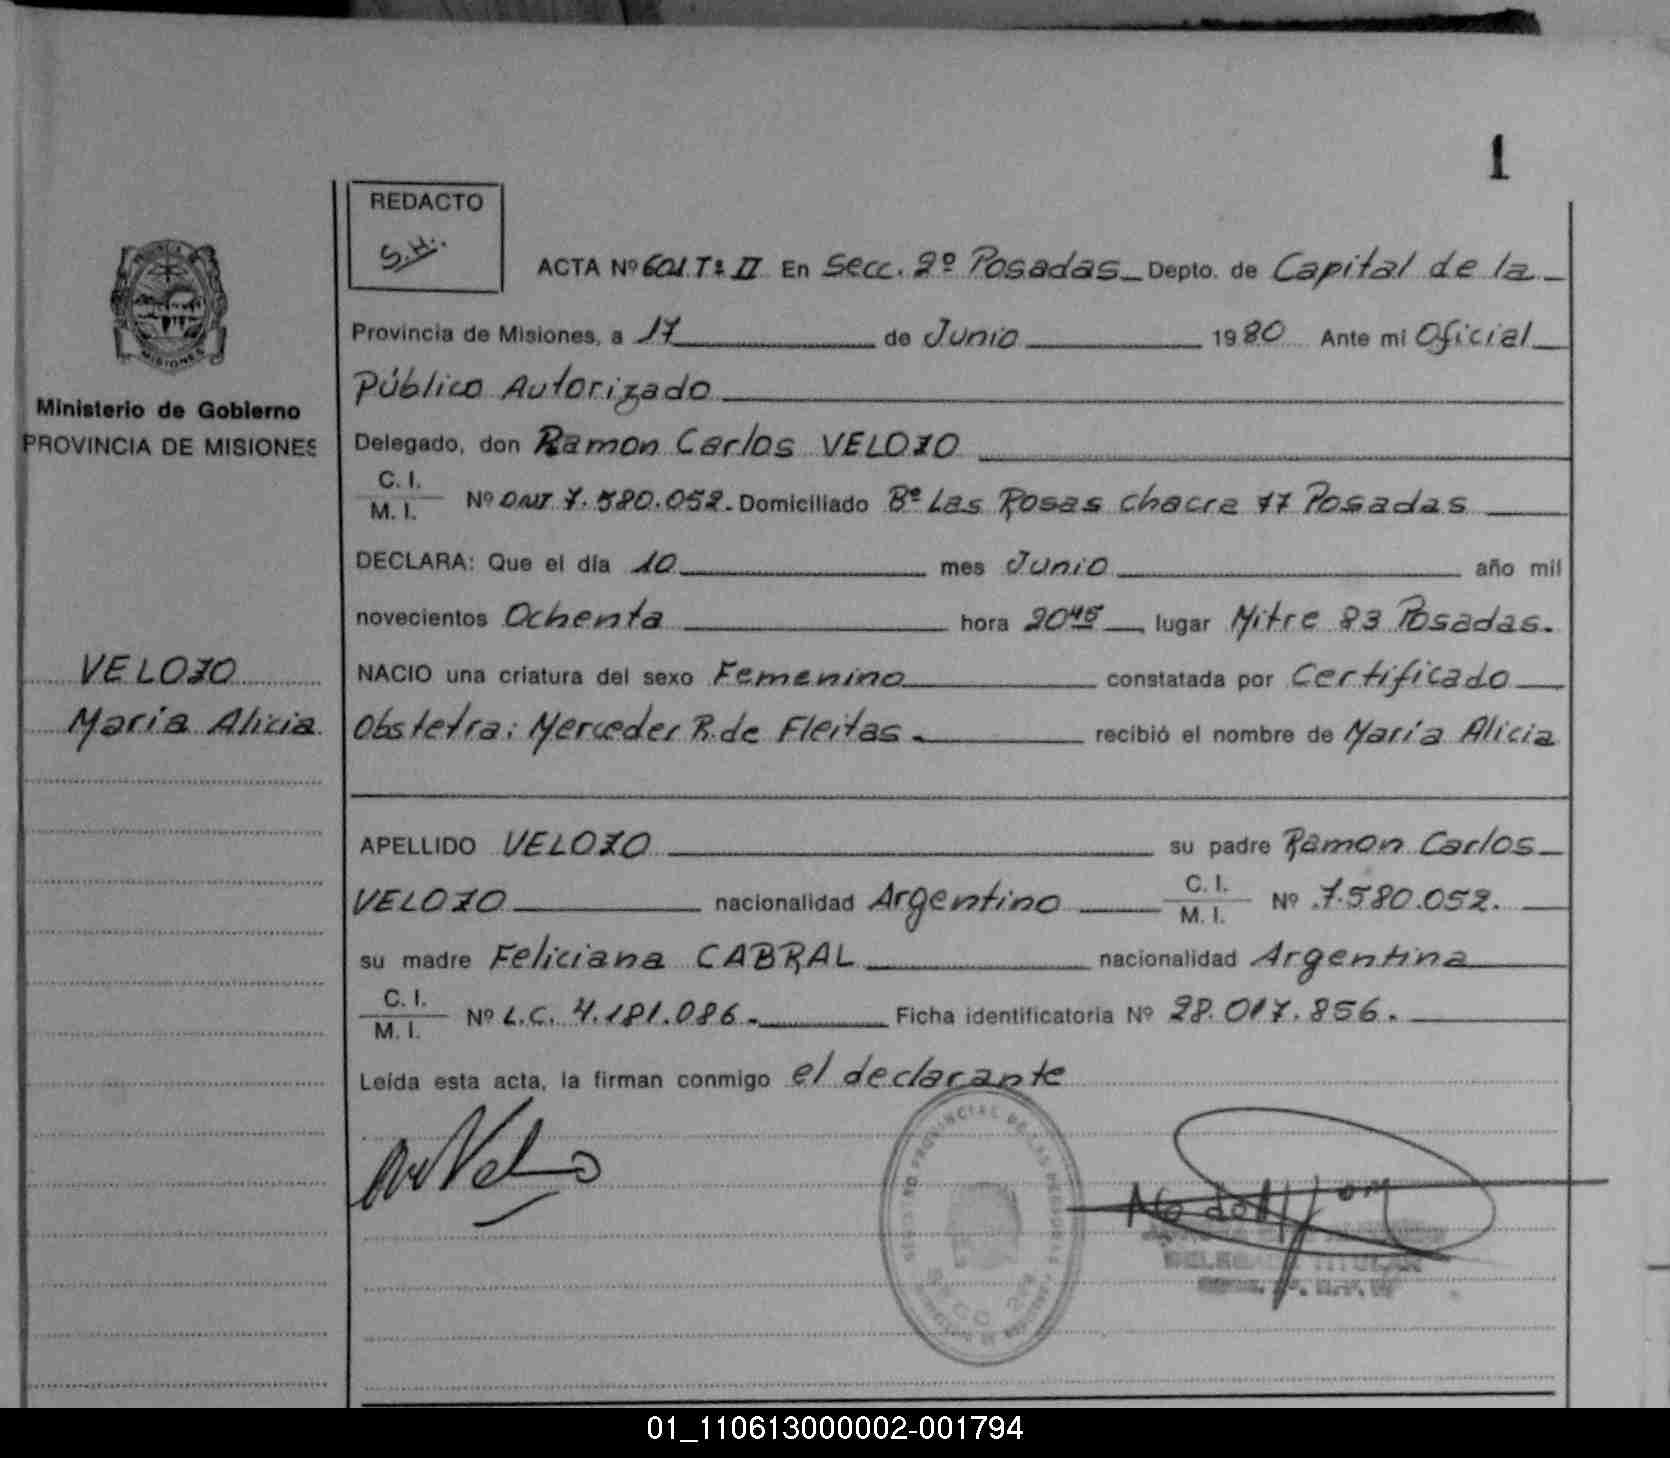 1
REDACTO
S.H.
ACTA Nº 601. Tº II En Secc. 2º Posadas Depto. de Capital de la
Provincia de Misiones, a 17 de Junio 1980 Ante mi Oficial
Público Autorizado
Ministerio de Gobierno
PROVINCIA DE MISIONES
Delegado, don Ramon Carlos VELOZO
C. I.
M. I. Nº DNI 7.580.052. Domiciliado Bº Las Rosas chacra 77 Posadas
DECLARA: Que el día 10 mes Junio año mil
novecientos Ochenta hora 20⁴⁵ lugar Mitre 83 Posadas.
VELOZO
NACIO una criatura del sexo Femenino constatada por Certificado
María Alicia.
Obstetra: Merceder R. de Fleitas. recibió el nombre de María Alicia
APELLIDO VELOZO su padre Ramon Carlos
VELOZO nacionalidad Argentino C. I. M. I. Nº 7.580.052.
su madre Feliciana CABRAL nacionalidad Argentina
C. I.
M. I. Nº L.C. 4.181.086. Ficha identificatoria Nº 28.017.856.
Leída esta acta, la firman conmigo el declarante
MISIONES
REGISTRO PROVINCIAL DE LAS PERSONAS
DELEGADA TITULAR
01_110613000002-001794